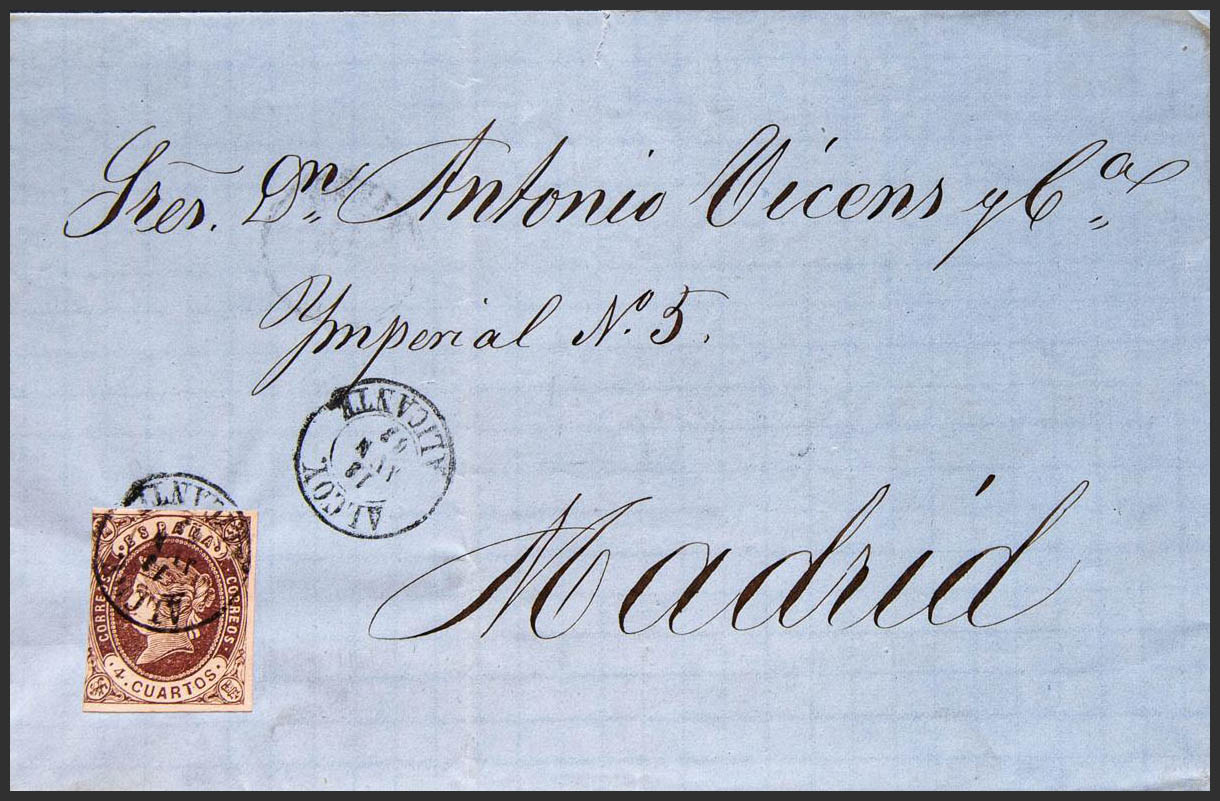 Sres. Dn. Antonio Vicens y Ca.
Ymperial No. 5.
ALICANTE
ALCOY.
Madrid
ESPAÑA
CORREOS
CORREOS
4. CUARTOS.